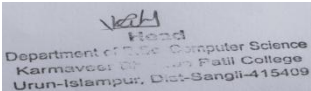 Head
Department of B.Sc. Computer Science
Karmaveer Patil College
Urun-Islampur, Dist-Sangli-415409